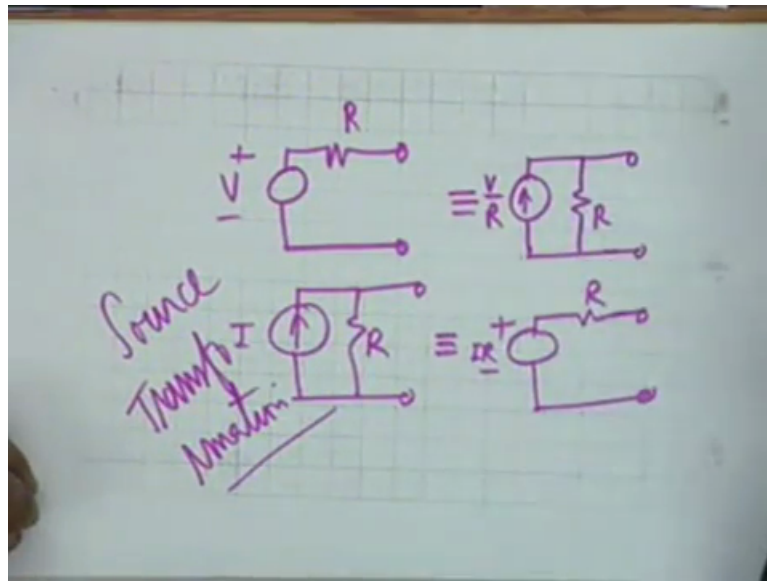 R
+
V
−
≡ V/R
R
Source
Transfor
mation
I
R
≡ IR
+
−
R